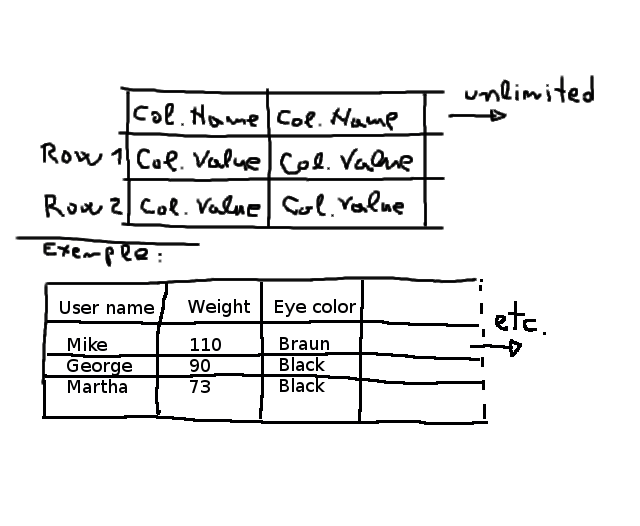 unlimited
Col. Name Col. Name
Row 1 Col. Value Col. Value
Row 2 Col. Value Col. Value
Exemple:
User name Weight Eye color
etc.
Mike 110 Braun
George 90 Black
Martha 73 Black